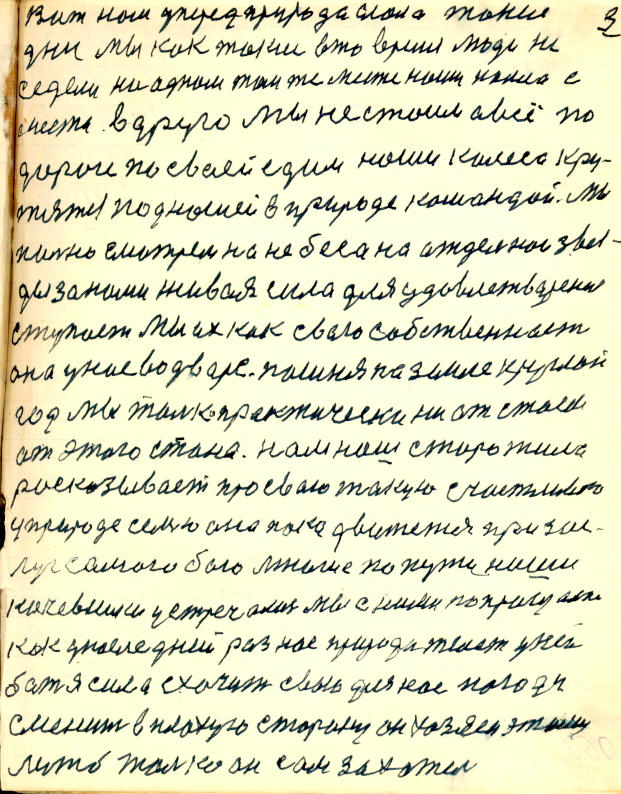 3
Вит нам упередприрода слала такие
дни мы как такие вто время люди не
седели на одном там же месте наши колеса с
места. вдруго Мы не стоим а всё по
дороге по сваей едим наши колеса кру-
тятся под нашей в природе командой. Мы
на небеса на отделное звез-
ды за нами живая сила для удовлетварение
ступает Мы их как сваго собственност
она у нас водваре. по земле круглой
год Мы толко практически ни от стаем
от этого стана. нам наш сторожила
росказывает просваю такую счастливою
у природе семю она пока движется при зас-
луг самого бога Многие по пути наши
качевники устречалис мы с ними
как упоследней раз нас природа у ней
батя сила схочит сваю для нас погоды
сменит в плахую сторану он хозяен этаму
лето толко он сам захотел